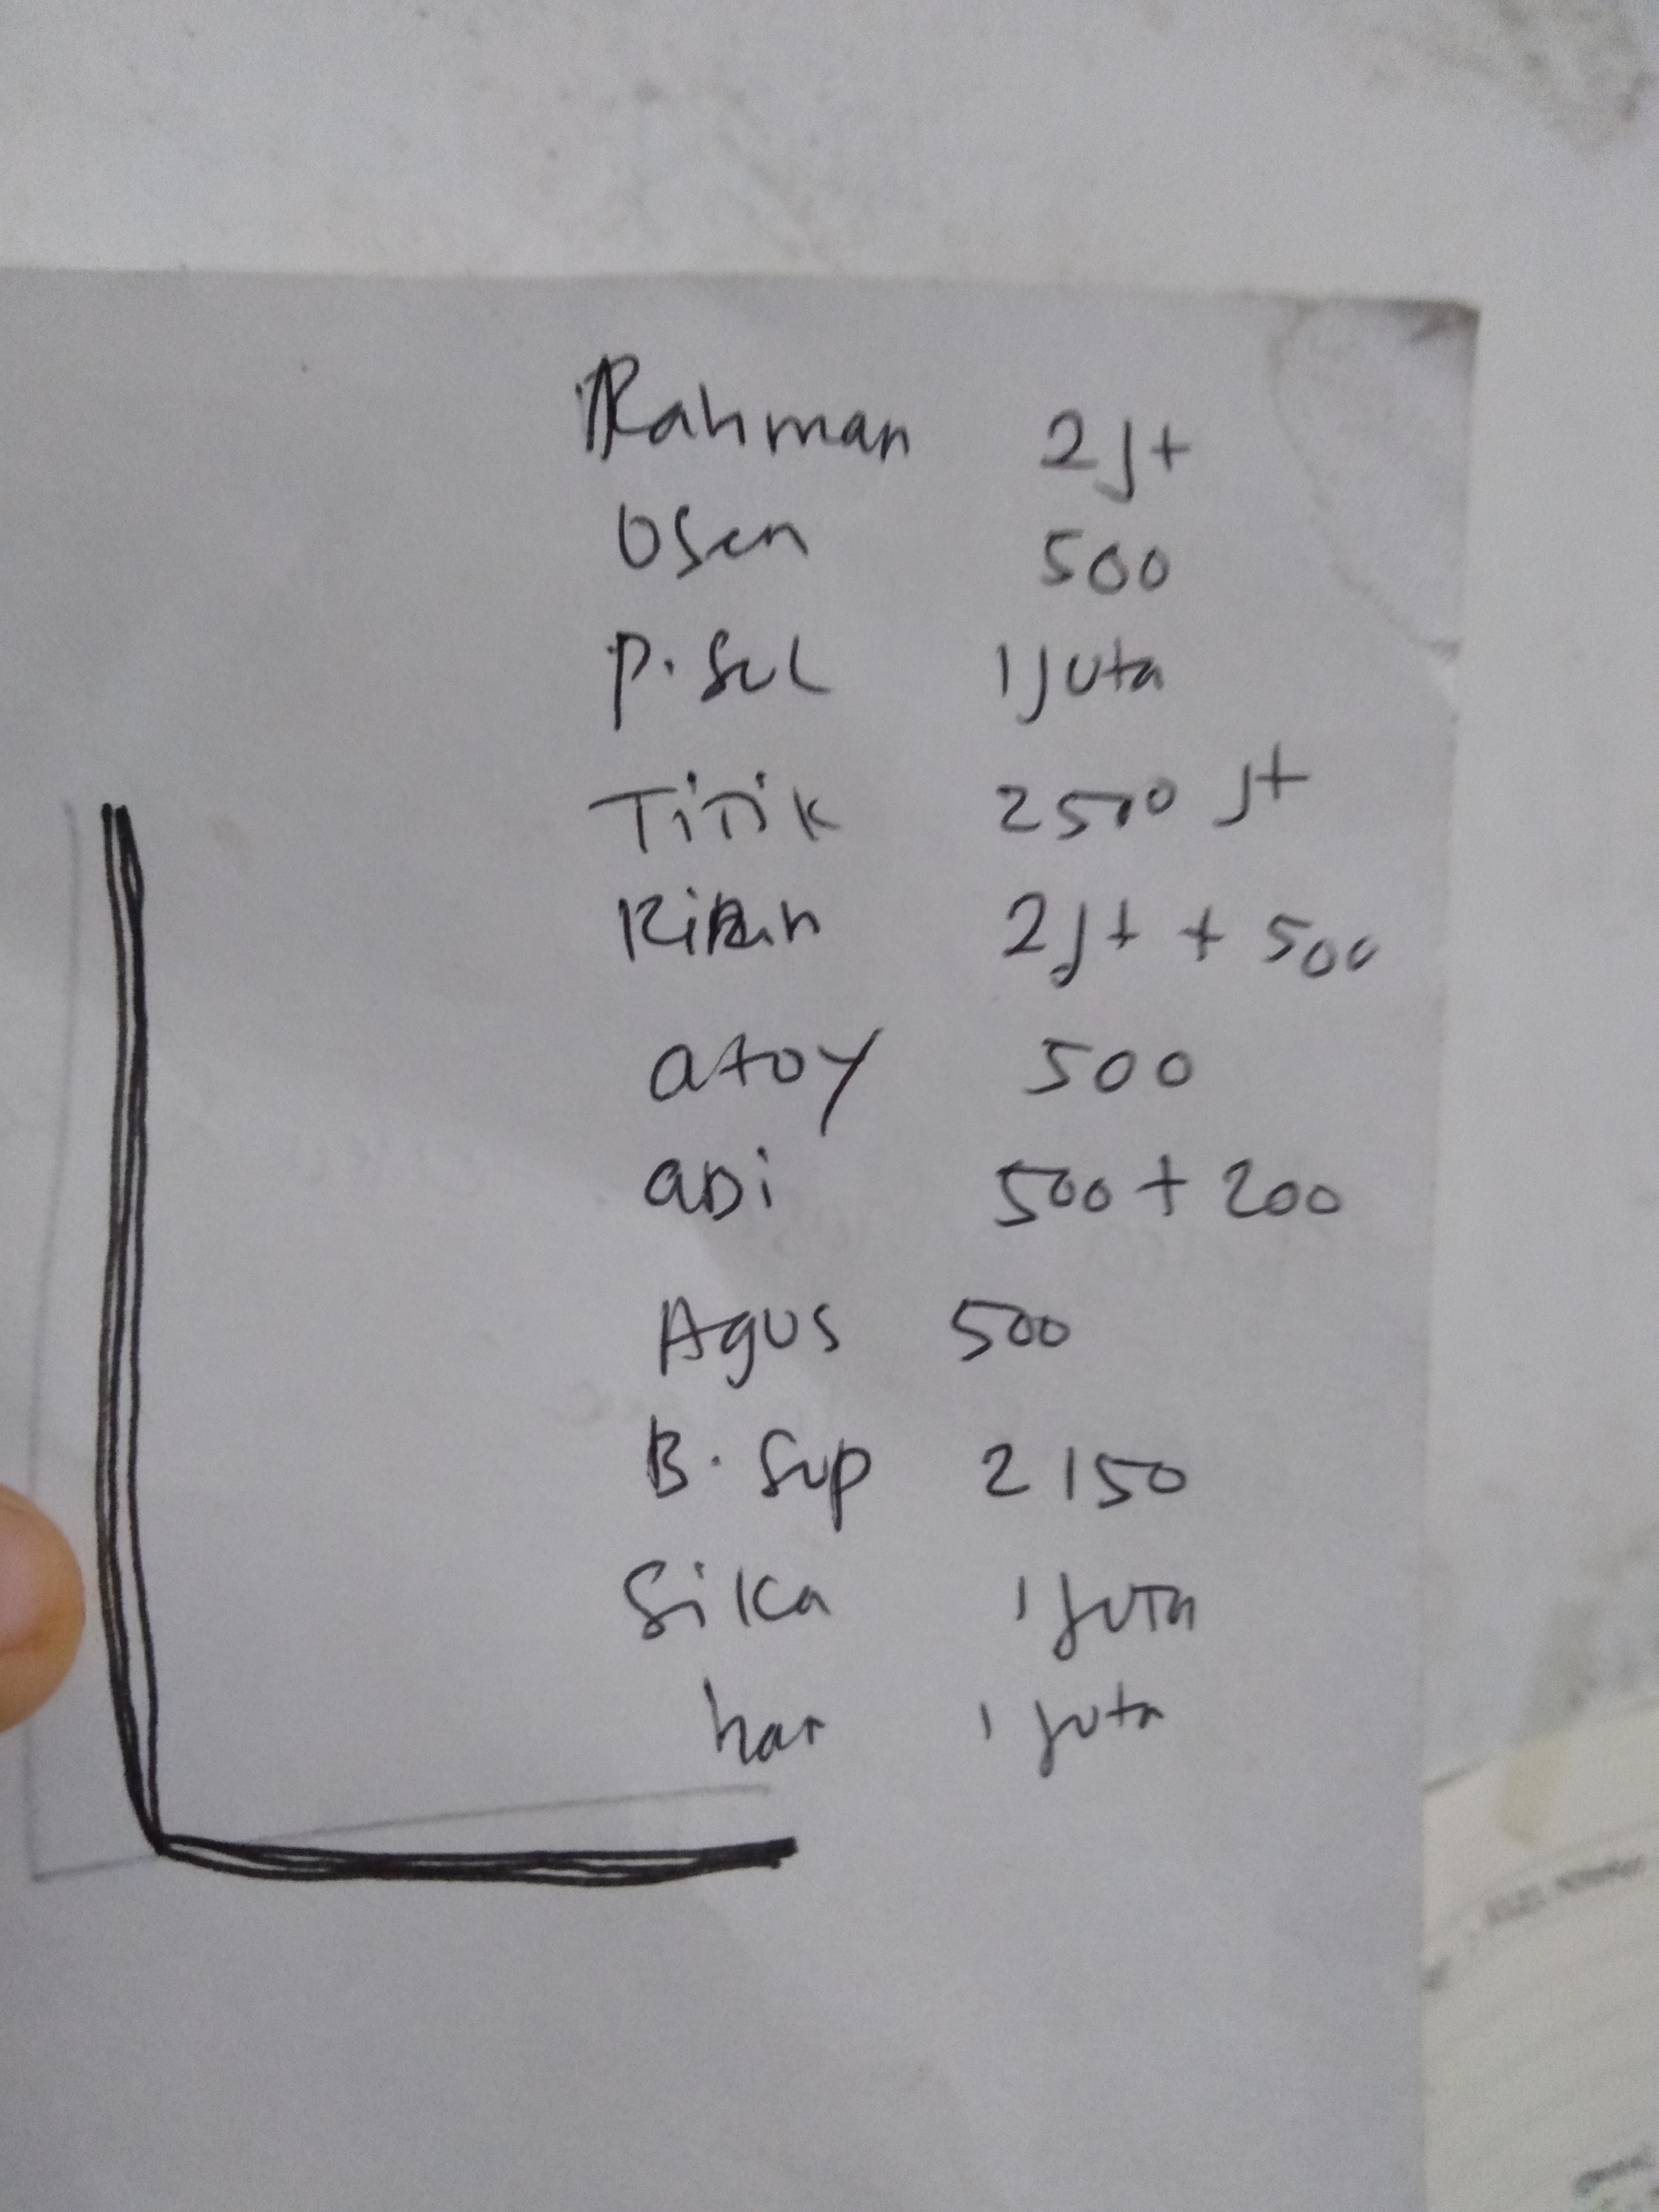 Rahman 2 jt
Osen 500
P. Sul 1 juta
Titik 2500 jt
2 jt + 500
atoy 500
aDi 500 + 200
Agus 500
B. Sup 2150
Sika 1 juta
har 1 juta